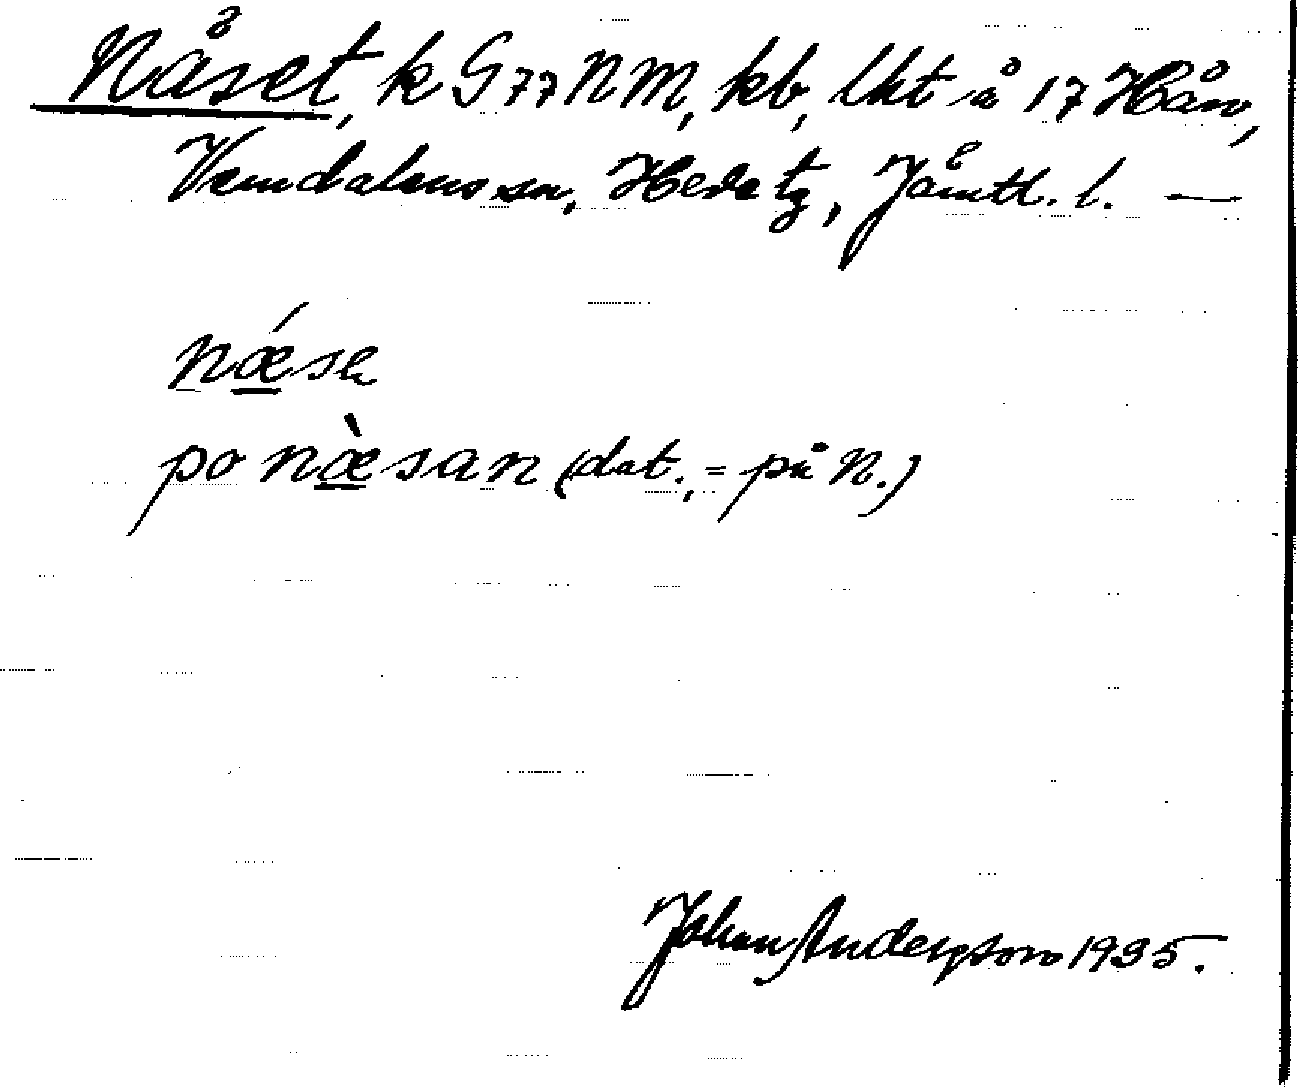 Nåset, k G77NM, kb, lkt å 17 Hån,
Vemdalens sn, Heds tg, Jämtl. l. —
næse
po næsan (dat., = på N.)
Johan Anderson 1935.